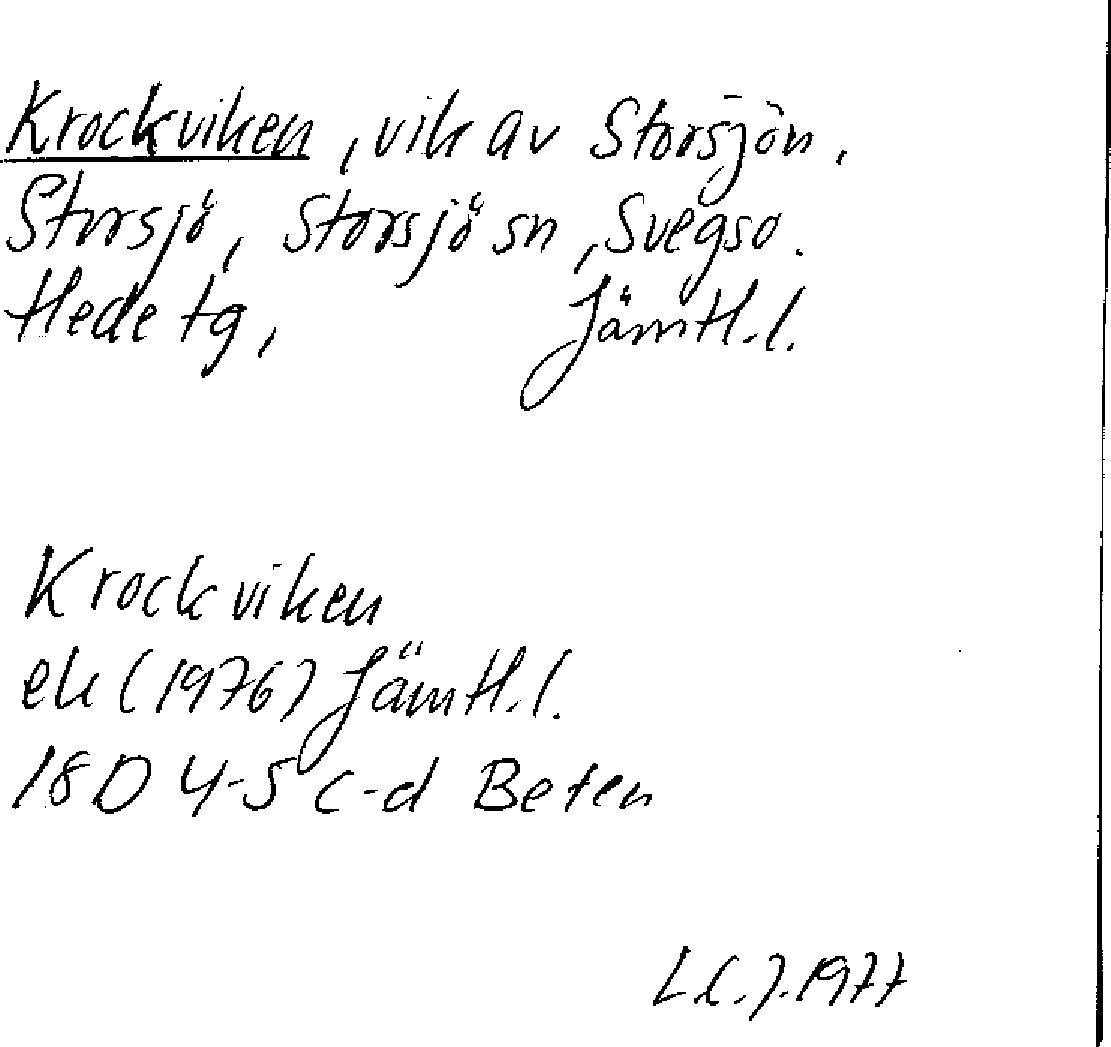 Krockviken, vik av Storsjön,
Storsjö, Storsjö sn, Svegs o.
Hede tg, Jämtl.l.
Krockviken
ek (1976) Jämtl.l.
18D 4-5 c-d Beten
L.C.J. 1977